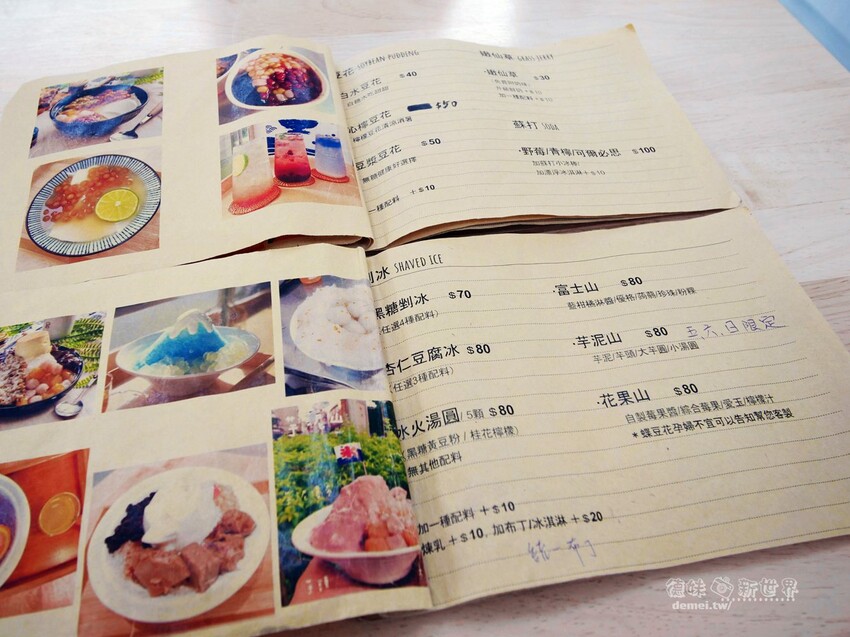 豆花 SOYBEAN PUDDING
白水豆花 $40
心檸豆花 $50
檸檬豆花清涼消暑
豆漿豆花 $50
無糖健康好選擇
加一種配料 +$10
嫩仙草 GRASS JELLY
·嫩仙草 $30
加一種配料+$10
蘇打 SODA
·野莓/青檸/可爾必思 $100
加蘇打小冰棒
加漂浮冰淇淋+$10
剉冰 SHAVED ICE
黑糖剉冰 $70
(任選4種配料)
杏仁豆腐冰 $80
(任選3種配料)
冰火湯圓/5顆 $80
(黑糖黃豆粉/桂花檸檬)
無其他配料
加一種配料 +$10
煉乳 +$10, 加布丁/冰淇淋 +$20
統一布丁
·富士山 $80
藍柑橘淋醬/優格/蒟蒻/珍珠/粉粿
·芋泥山 $80 五六日限定
芋泥/芋頭/大芋圓/小湯圓
·花果山 $80
自製莓果醬/綜合莓果/愛玉/檸檬汁
*蝶豆花孕婦不宜可以告知幫您客製
德味 新世界
demei.tw/